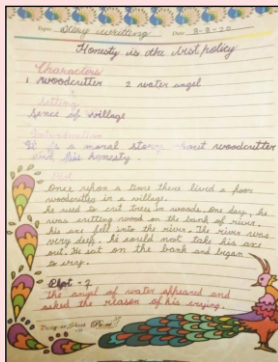 Topic: Story writting Date: 8-8-20
Honesty is the best policy
Characters
1 woodcutter 2 water angel
Setting
Sence of village
Introduction
It is a moral story about woodcutter
and his honesty.
Plot
Once upon a time there lived a poor
woodcutter in a village.
he used to cut trees in woods. One day, he
was cutting wood on the bank of river.
his axe fell into the river. The river was
very deep. he could not take his axe
out. He sat on the bank and began
to cry.
Plot - 2
The angel of water appeared and
asked the reason of his crying.